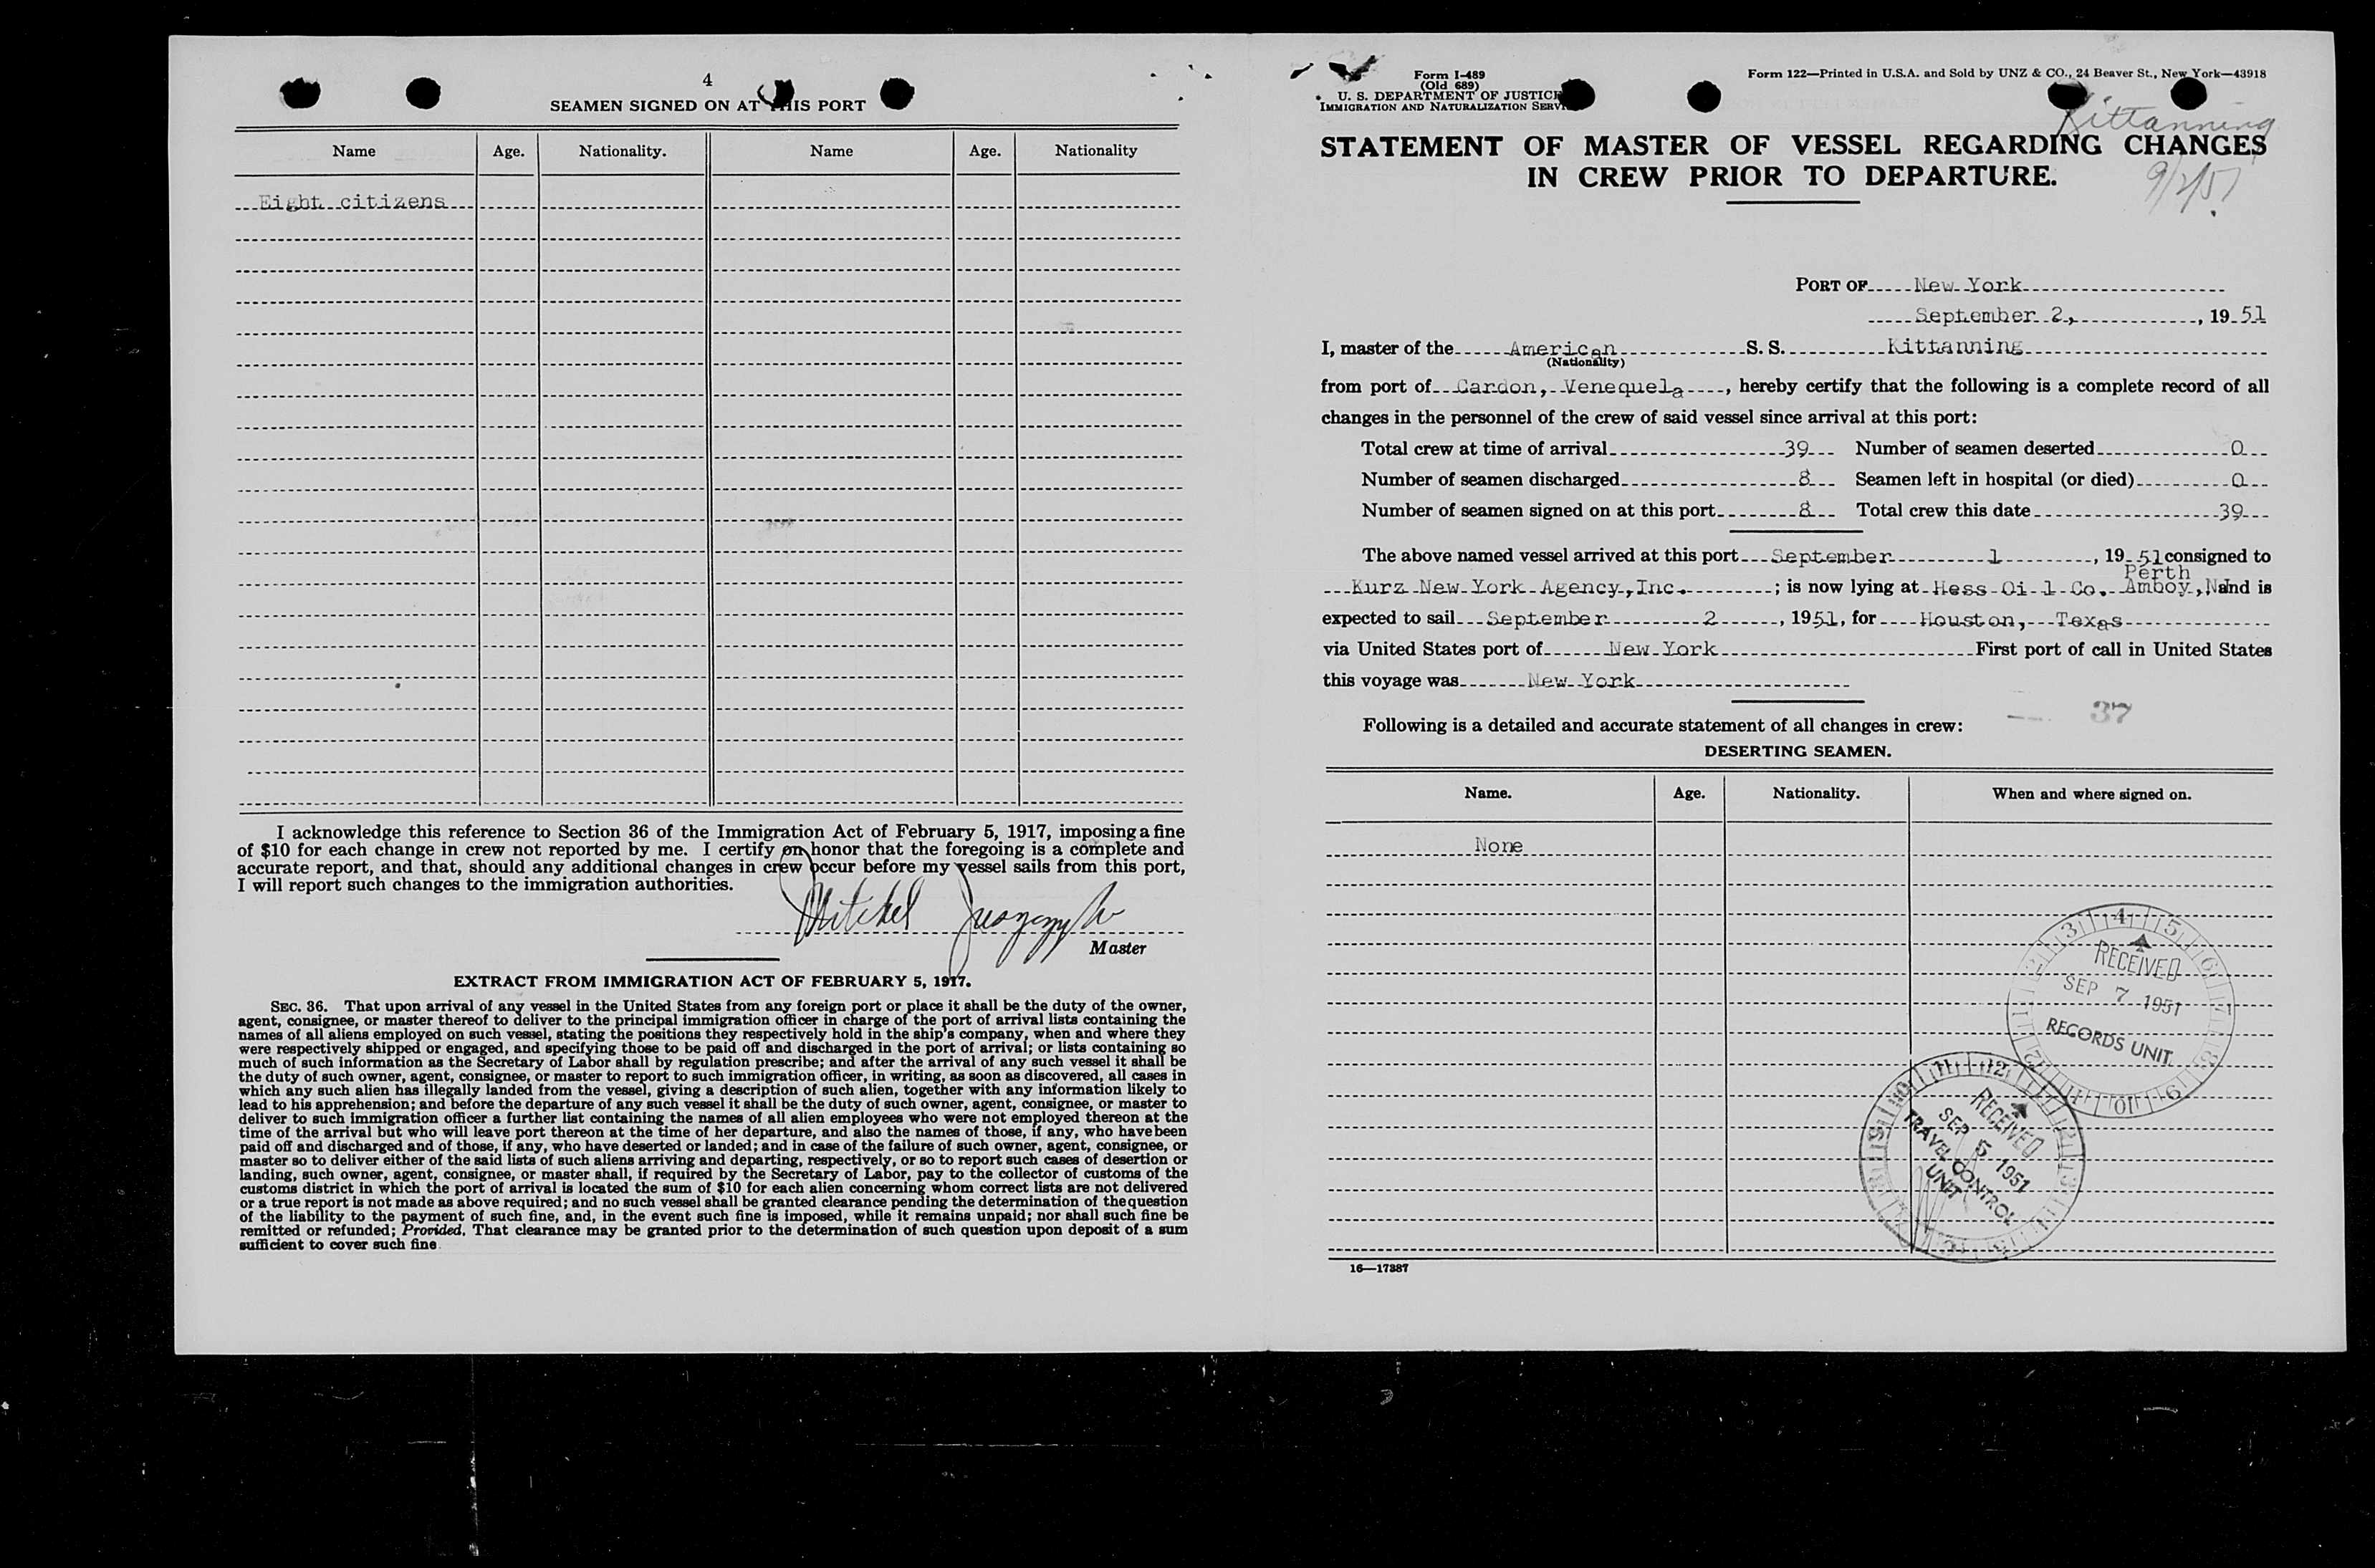 4
SEAMEN SIGNED ON AT THIS PORT
Name Age. Nationality. Name Age. Nationality
Eight citizens
I acknowledge this reference to Section 36 of the Immigration Act of February 5, 1917, imposing a fine
of $10 for each change in crew not reported by me. I certify on honor that the foregoing is a complete and
accurate report, and that, should any additional changes in crew occur before my vessel sails from this port,
I will report such changes to the immigration authorities.
Mitchel
Master
EXTRACT FROM IMMIGRATION ACT OF FEBRUARY 5, 1917.
SEC. 36. That upon arrival of any vessel in the United States from any foreign port or place it shall be the duty of the owner,
agent, consignee, or master thereof to deliver to the principal immigration officer in charge of the port of arrival lists containing the
names of all aliens employed on such vessel, stating the positions they respectively hold in the ship's company, when and where they
were respectively shipped or engaged, and specifying those to be paid off and discharged in the port of arrival; or lists containing so
much of such information as the Secretary of Labor shall by regulation prescribe; and after the arrival of any such vessel it shall be
the duty of such owner, agent, consignee, or master to report to such immigration officer, in writing, as soon as discovered, all cases in
which any such alien has illegally landed from the vessel, giving a description of such alien, together with any information likely to
lead to his apprehension; and before the departure of any such vessel it shall be the duty of such owner, agent, consignee, or master to
deliver to such immigration officer a further list containing the names of all alien employees who were not employed thereon at the
time of the arrival but who will leave port thereon at the time of her departure, and also the names of those, if any, who have been
paid off and discharged and of those, if any, who have deserted or landed; and in case of the failure of such owner, agent, consignee, or
master so to deliver either of the said lists of such aliens arriving and departing, respectively, or so to report such cases of desertion or
landing, such owner, agent, consignee, or master shall, if required by the Secretary of Labor, pay to the collector of customs of the
customs district in which the port of arrival is located the sum of $10 for each alien concerning whom correct lists are not delivered
or a true report is not made as above required; and no such vessel shall be granted clearance pending the determination of the question
of the liability to the payment of such fine, and, in the event such fine is imposed, while it remains unpaid; nor shall such fine be
remitted or refunded; Provided, That clearance may be granted prior to the determination of such question upon deposit of a sum
sufficient to cover such fine.
Form I-489
(Old 689)
U. S. DEPARTMENT OF JUSTICE
IMMIGRATION AND NATURALIZATION SERVICE
Form 122—Printed in U.S.A. and Sold by UNZ & CO., 24 Beaver St., New York—43918
Kittanning
STATEMENT OF MASTER OF VESSEL REGARDING CHANGES
IN CREW PRIOR TO DEPARTURE.
9/2/51
PORT OF New York
September 2, , 19 51
I, master of the American S. S. Kittanning
(Nationality)
from port of Cardon, Venequela , hereby certify that the following is a complete record of all
changes in the personnel of the crew of said vessel since arrival at this port:
Total crew at time of arrival 39 Number of seamen deserted 0
Number of seamen discharged 8 Seamen left in hospital (or died) 0
Number of seamen signed on at this port 8 Total crew this date 39
The above named vessel arrived at this port September 1 , 19 51 consigned to
Perth
Kurz New York Agency, Inc. ; is now lying at Hess Oi l Co. Amboy, NJ and is
expected to sail September 2 , 1951, for Houston, Texas
via United States port of New York First port of call in United States
this voyage was New York
37
Following is a detailed and accurate statement of all changes in crew:
DESERTING SEAMEN.
Name. Age. Nationality. When and where signed on.
None
RECEIVED
SEP 7 1951
RECORDS UNIT
RECEIVED
SEP 5 1951
TRAVEL CONTROL
UNIT
16—17387